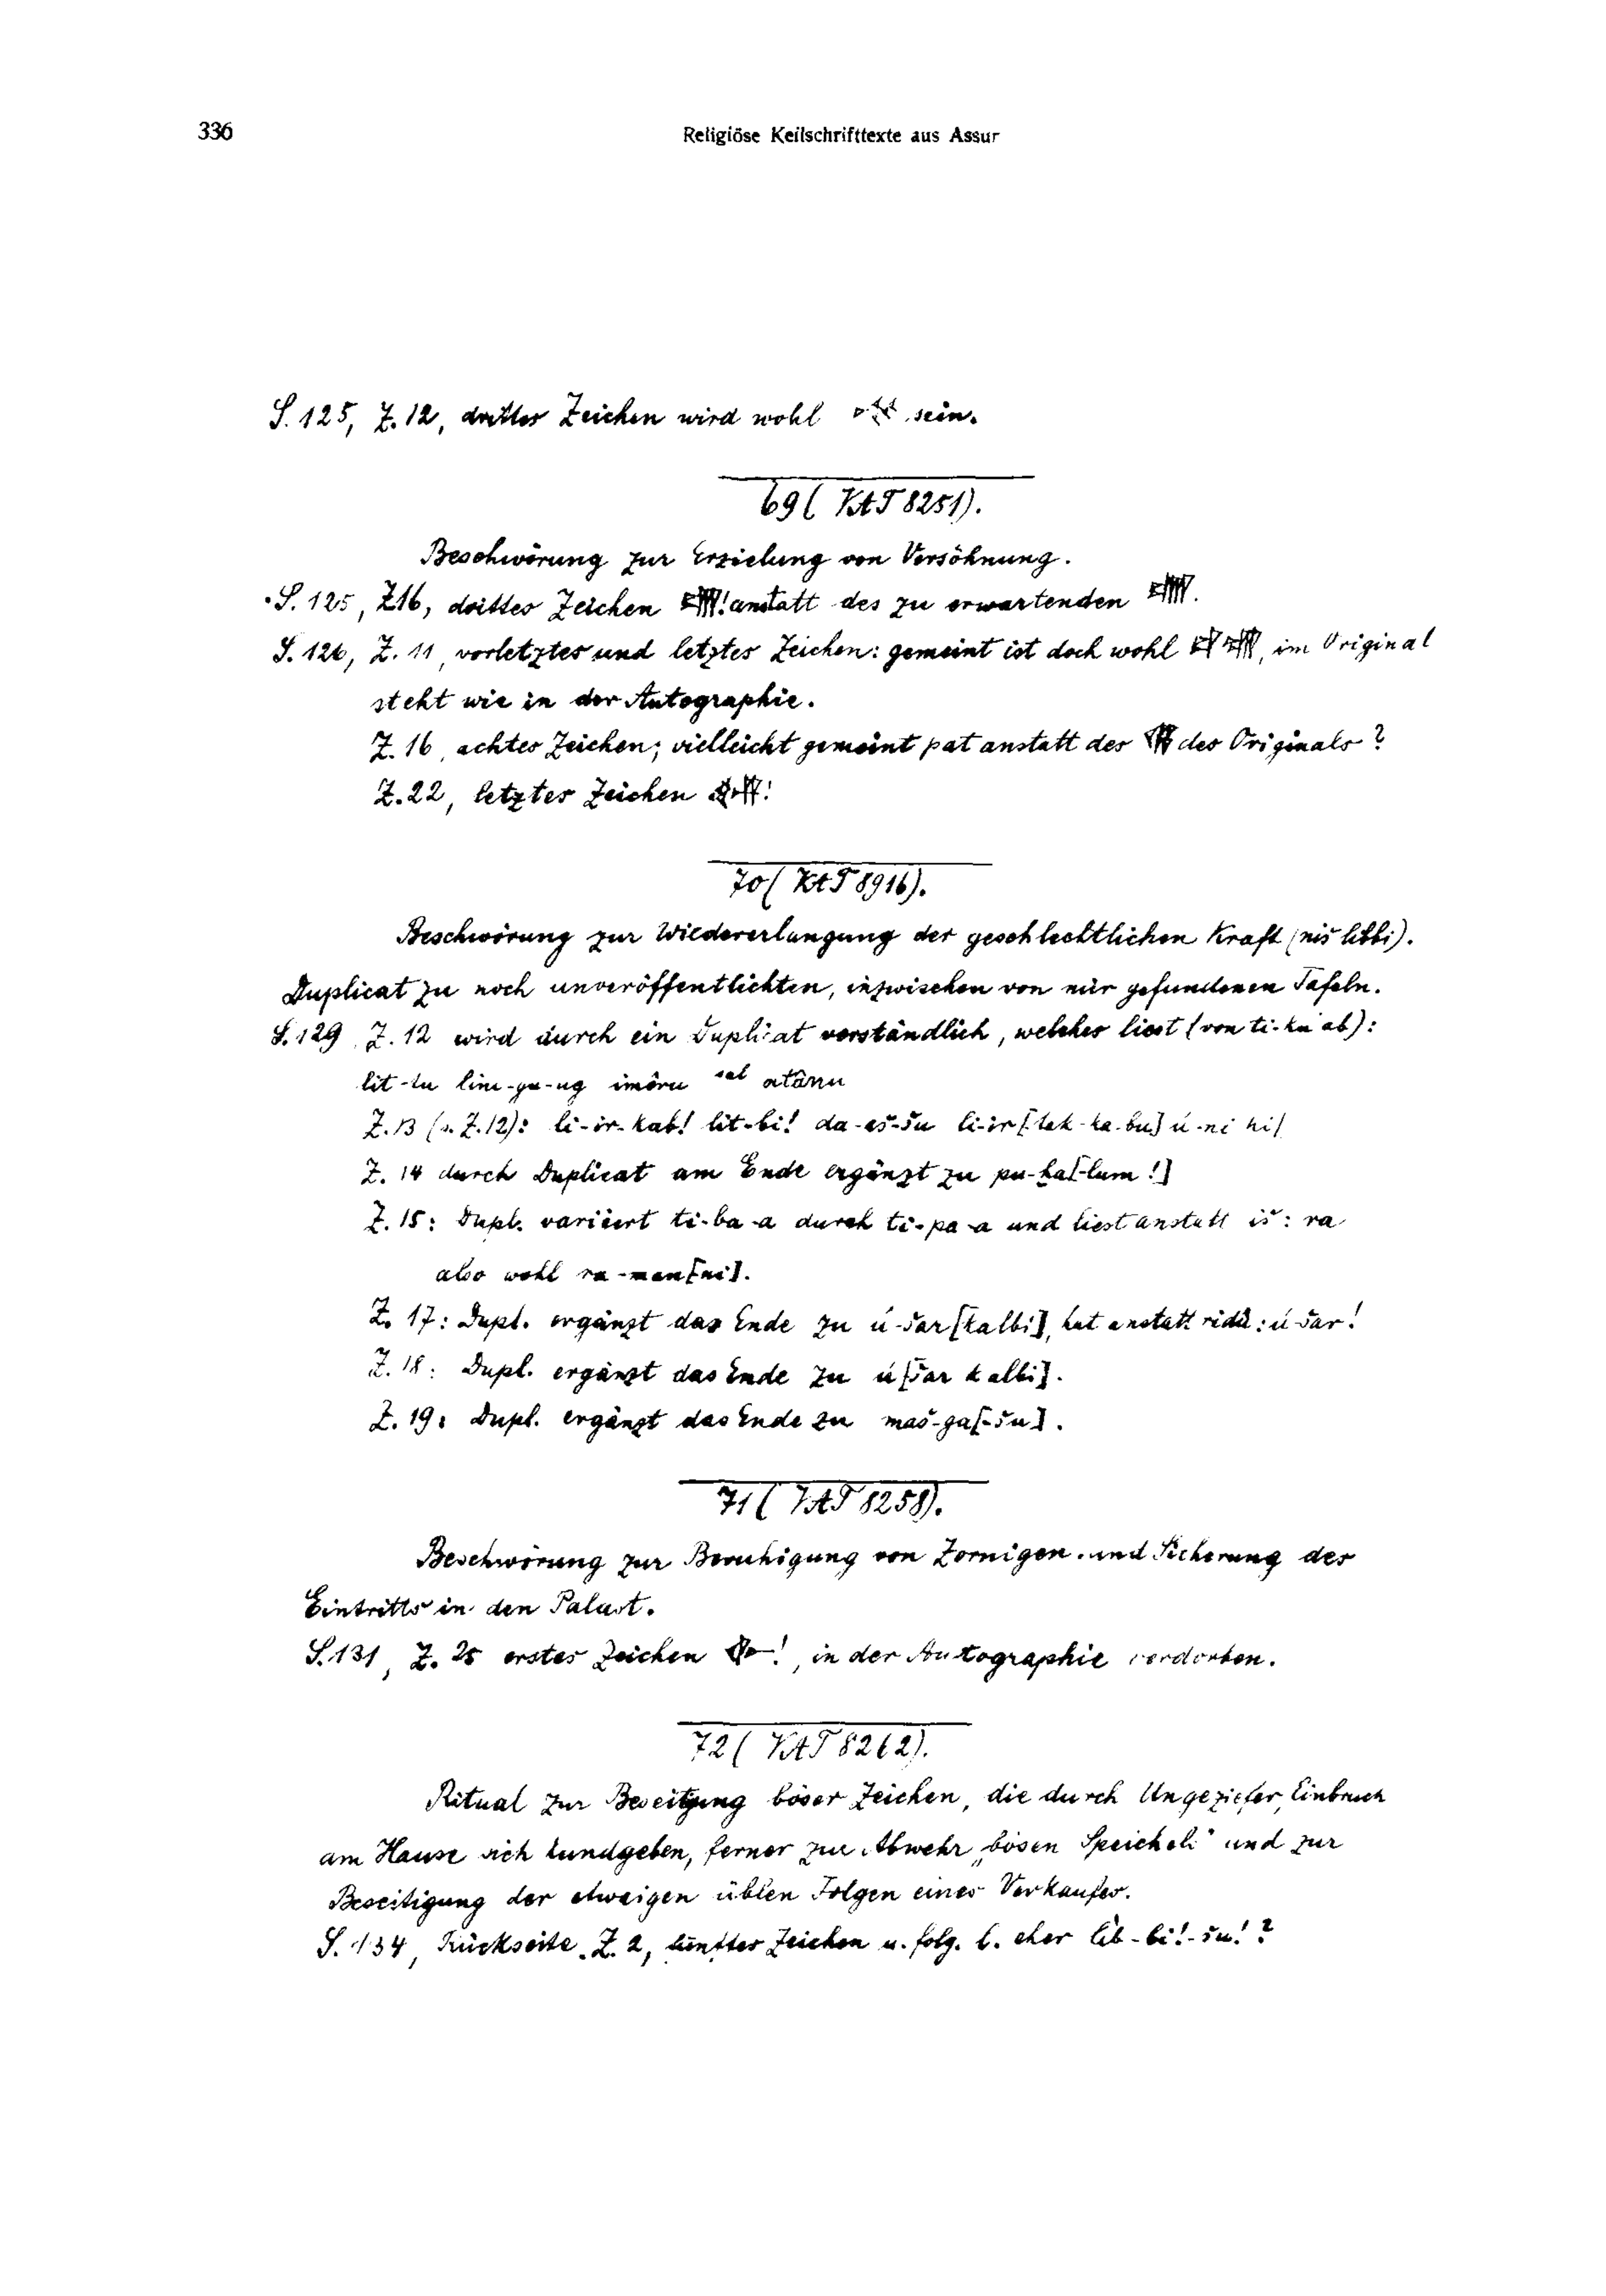 336
Religiöse Keilschrifttexte aus Assur
S. 125, Z. 12, drittes Zeichen wird wohl sein.
69 (VAT 8251).
Beschwörung zur Erzielung von Versöhnung.
S. 125, Z 16, drittes Zeichen ! anstatt des zu erwartenden .
S. 126, Z. 11, vorletztes und letztes Zeichen: gemeint ist doch wohl , im Original
steht wie in der Autographie.
Z. 16, achtes Zeichen; vielleicht gemeint pat anstatt des des Originals?
Z. 22, letztes Zeichen !
70 (VAT 8916).
Beschwörung zur Wiedererlangung der geschlechtlichen Kraft (niš libbi).
Duplicat zu noch unveröffentlichten, inzwischen von mir gefundenen Tafeln.
S. 129, Z. 12 wird durch ein Duplicat verständlich, welches liest (von ti-ku ab):
lit-tu lim-gu-ug imêru sal atânu
Z. 13 (s. Z. 12): li-ir-kab! lit-bi! da-aš-šu li-ir[tak-ka-bu] ú-ni
Z. 14 durch Duplicat am Ende ergänzt zu pu-ḫa[-lum!]
Z. 15: Dupl. variiert ti-ba-a durch ti-pa-a und liest anstatt iš: ra
also wohl ra-man[ni].
Z. 17: Dupl. ergänzt das Ende zu ú-šar [kalbi], hat anstatt ridû: ú-šar!
Z. 18: Dupl. ergänzt das Ende zu ú[šar kalbi].
Z. 19: Dupl. ergänzt das Ende zu maš-ga[-šu].
71 (VAT 8258).
Beschwörung zur Beruhigung von Zornigen und Sicherung des
Eintritts in den Palast.
S. 131, Z. 25 erstes Zeichen !, in der Autographie verdorben.
72 (VAT 8262).
Ritual zur Beseitgung böser Zeichen, die durch Ungeziefer, Einbruch
am Hause sich kundgeben, ferner zur Abwehr „bösen Speichels“ und zur
Beseitigung der etwaigen üblen Folgen eines Verkaufes.
S. 134, Rückseite, Z. 2, fünftes Zeichen u. folg. l. eher lib-bi!-šu!?